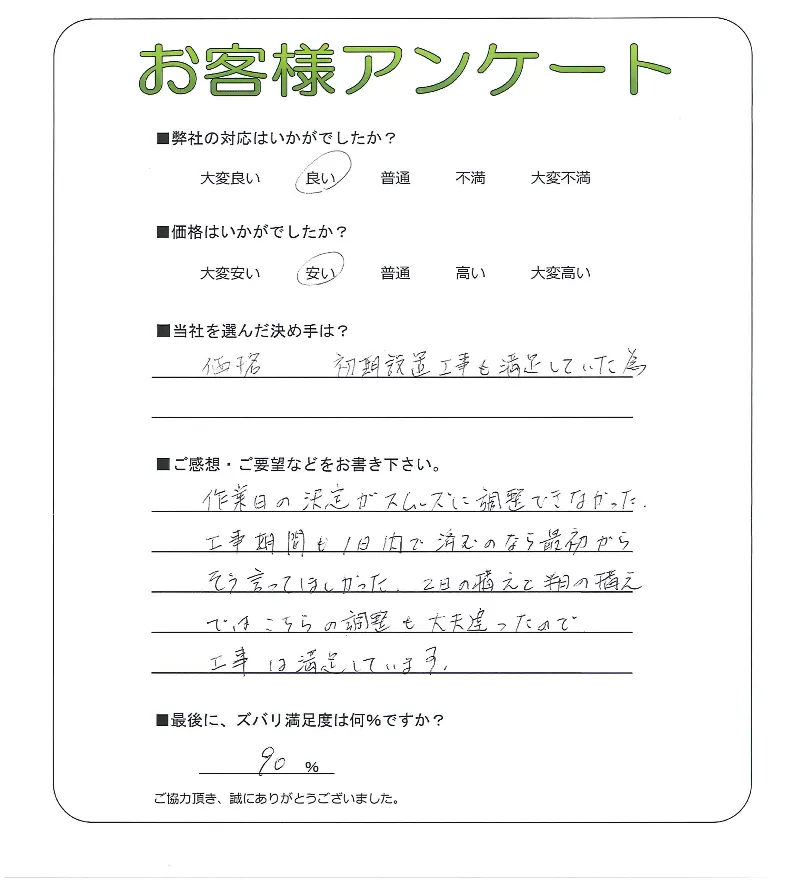 お客様アンケート
■弊社の対応はいかがでしたか？
大変良い 良い 普通 不満 大変不満
■価格はいかがでしたか？
大変安い 安い 普通 高い 大変高い
■当社を選んだ決め手は？
価格 初期設置工事も満足していた為
■ご感想・ご要望などをお書き下さい。
作業日の決定がスムーズに調整できなかった.
工事期間も1日内で済むのなら最初から
そう言ってほしかった. 2日の構えと 半日の構え
ではこちらの調整も大夫違ったので
工事は満足しています.
■最後に、ズバリ満足度は何％ですか？
90 ％
ご協力頂き、誠にありがとうございました。